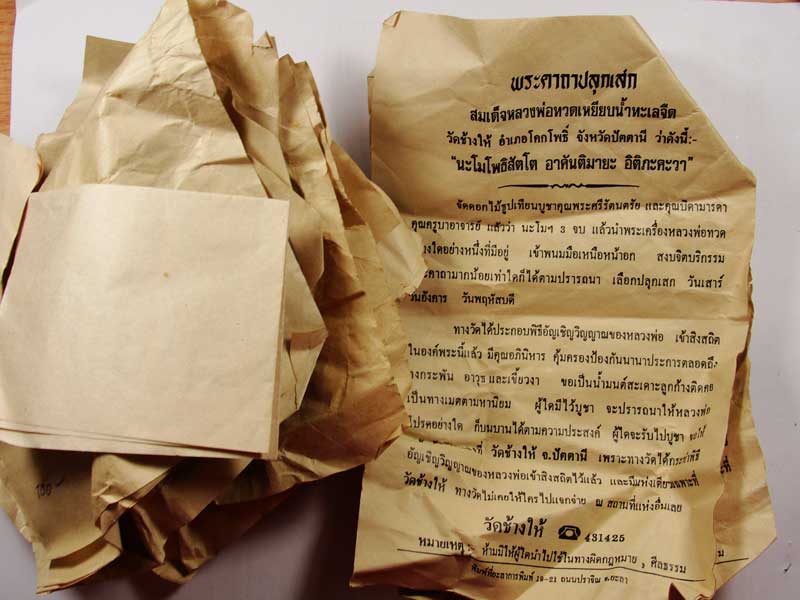 พระคาถาปลุกเสก
สมเด็จหลวงพ่อทวดเหยียบน้ำทะเลจืด
วัดช้างให้ อำเภอโคกโพธิ์ จังหวัดปัตตานี ว่าดังนี้:-
"นะโมโพธิสัตโต อาคันติมายะ อิติภะคะวา"
จัดดอกไม้ธูปเทียนบูชาคุณพระศรีรัตนตรัย และคุณบิดามารดา
คุณครูบาอาจารย์ แล้วว่า นะโมฯ 3 จบ แล้วนำพระเครื่องหลวงพ่อทวด
งใดอย่างหนึ่งที่มีอยู่ เข้าพนมมือเหนือหน้าอก สงบจิตบริกรรม
ะคาถามากน้อยเท่าใดก็ได้ตามปรารถนา เลือกปลุกเสก วันเสาร์
วันอังคาร วันพฤหัสบดี
ทางวัดได้ประกอบพิธีอัญเชิญวิญญาณของหลวงพ่อ เข้าสิงสถิต
ในองค์พระนี้แล้ว มีคุณอภินิหาร คุ้มครองป้องกันนานาประการตลอดถึง
างกระพัน อาวุธ และเขี้ยวงา ขอเป็นน้ำมนต์สะเดาะลูกก้างติดคอ
เป็นทางเมตตามหานิยม ผู้ใดมีไว้บูชา จะปรารถนาให้หลวงพ่อ
โปรดอย่างใด ก็บนบานได้ตามความประสงค์ ผู้ใดจะรับไปบูชา ขอให้
ที่ วัดช้างให้ จ.ปัตตานี เพราะทางวัดได้กระทำพิธี
อัญเชิญวิญญาณของหลวงพ่อเข้าสิงสถิตไว้แล้ว และมีแห่งเดียวเฉพาะที่
วัดช้างให้ ทางวัดไม่เคยให้ใครไปแจกจ่าย ณ สถานที่แห่งอื่นเลย
วัดช้างให้ ☎ 431425
หมายเหตุ :- ห้ามมิให้ผู้ใดนำไปใช้ในทางผิดกฎหมาย , ศีลธรรม
พิมพ์ที่ยะลาการพิมพ์ 19-21 ถนนปราจิณ อ.ยะลา
100